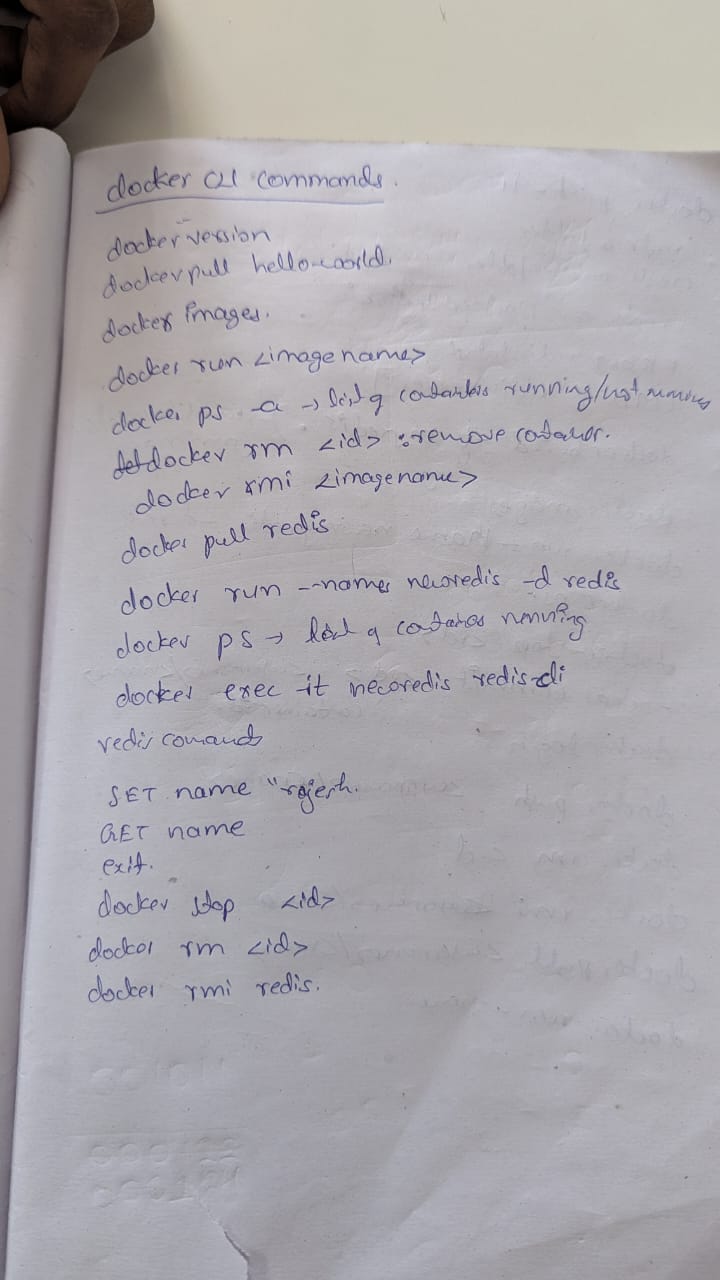 docker CLI commands.
docker version
docker pull hello-world.
docker images.
docker run <image name>
docker ps -a → list of containers running/not running
docker rm <id> : remove container.
docker rmi <imagename>
docker pull redis
docker run --name newredis -d redis
docker ps → list of containers running
docker exec -it newredis redis-cli
redis comands
SET name "rajesh.
GET name
exit.
docker stop <id>
docker rm <id>
docker rmi redis.